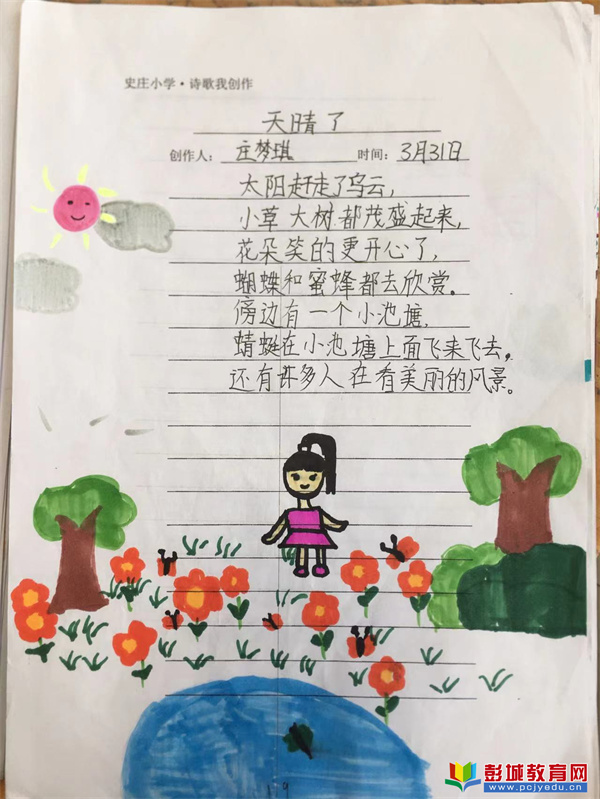 史庄小学·诗歌我创作
天晴了
创作人: 庄梦琪 时间: 3月31日
太阳赶走了乌云,
小草大树都茂盛起来,
花朵笑的更开心了,
蝴蝶和蜜蜂都去欣赏。
傍边有一个小池塘,
蜻蜓在小池塘上面飞来飞去。
还有许多人在看美丽的风景。
彭城教育网
www.pcjyedu.cn